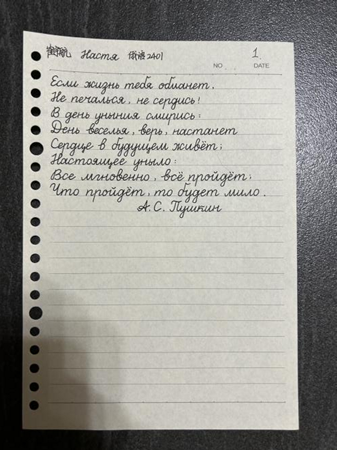 Настя 俄语2401
1
NO DATE
Если жизнь тебя обманет,
Не печалься, не сердись!
В день уныния смирись:
День веселья, верь, настанет
Сердце в будущем живёт;
Настоящее уныло:
Все мгновенно, всё пройдёт;
Что пройдёт, то будет мило.
А.С. Пушкин